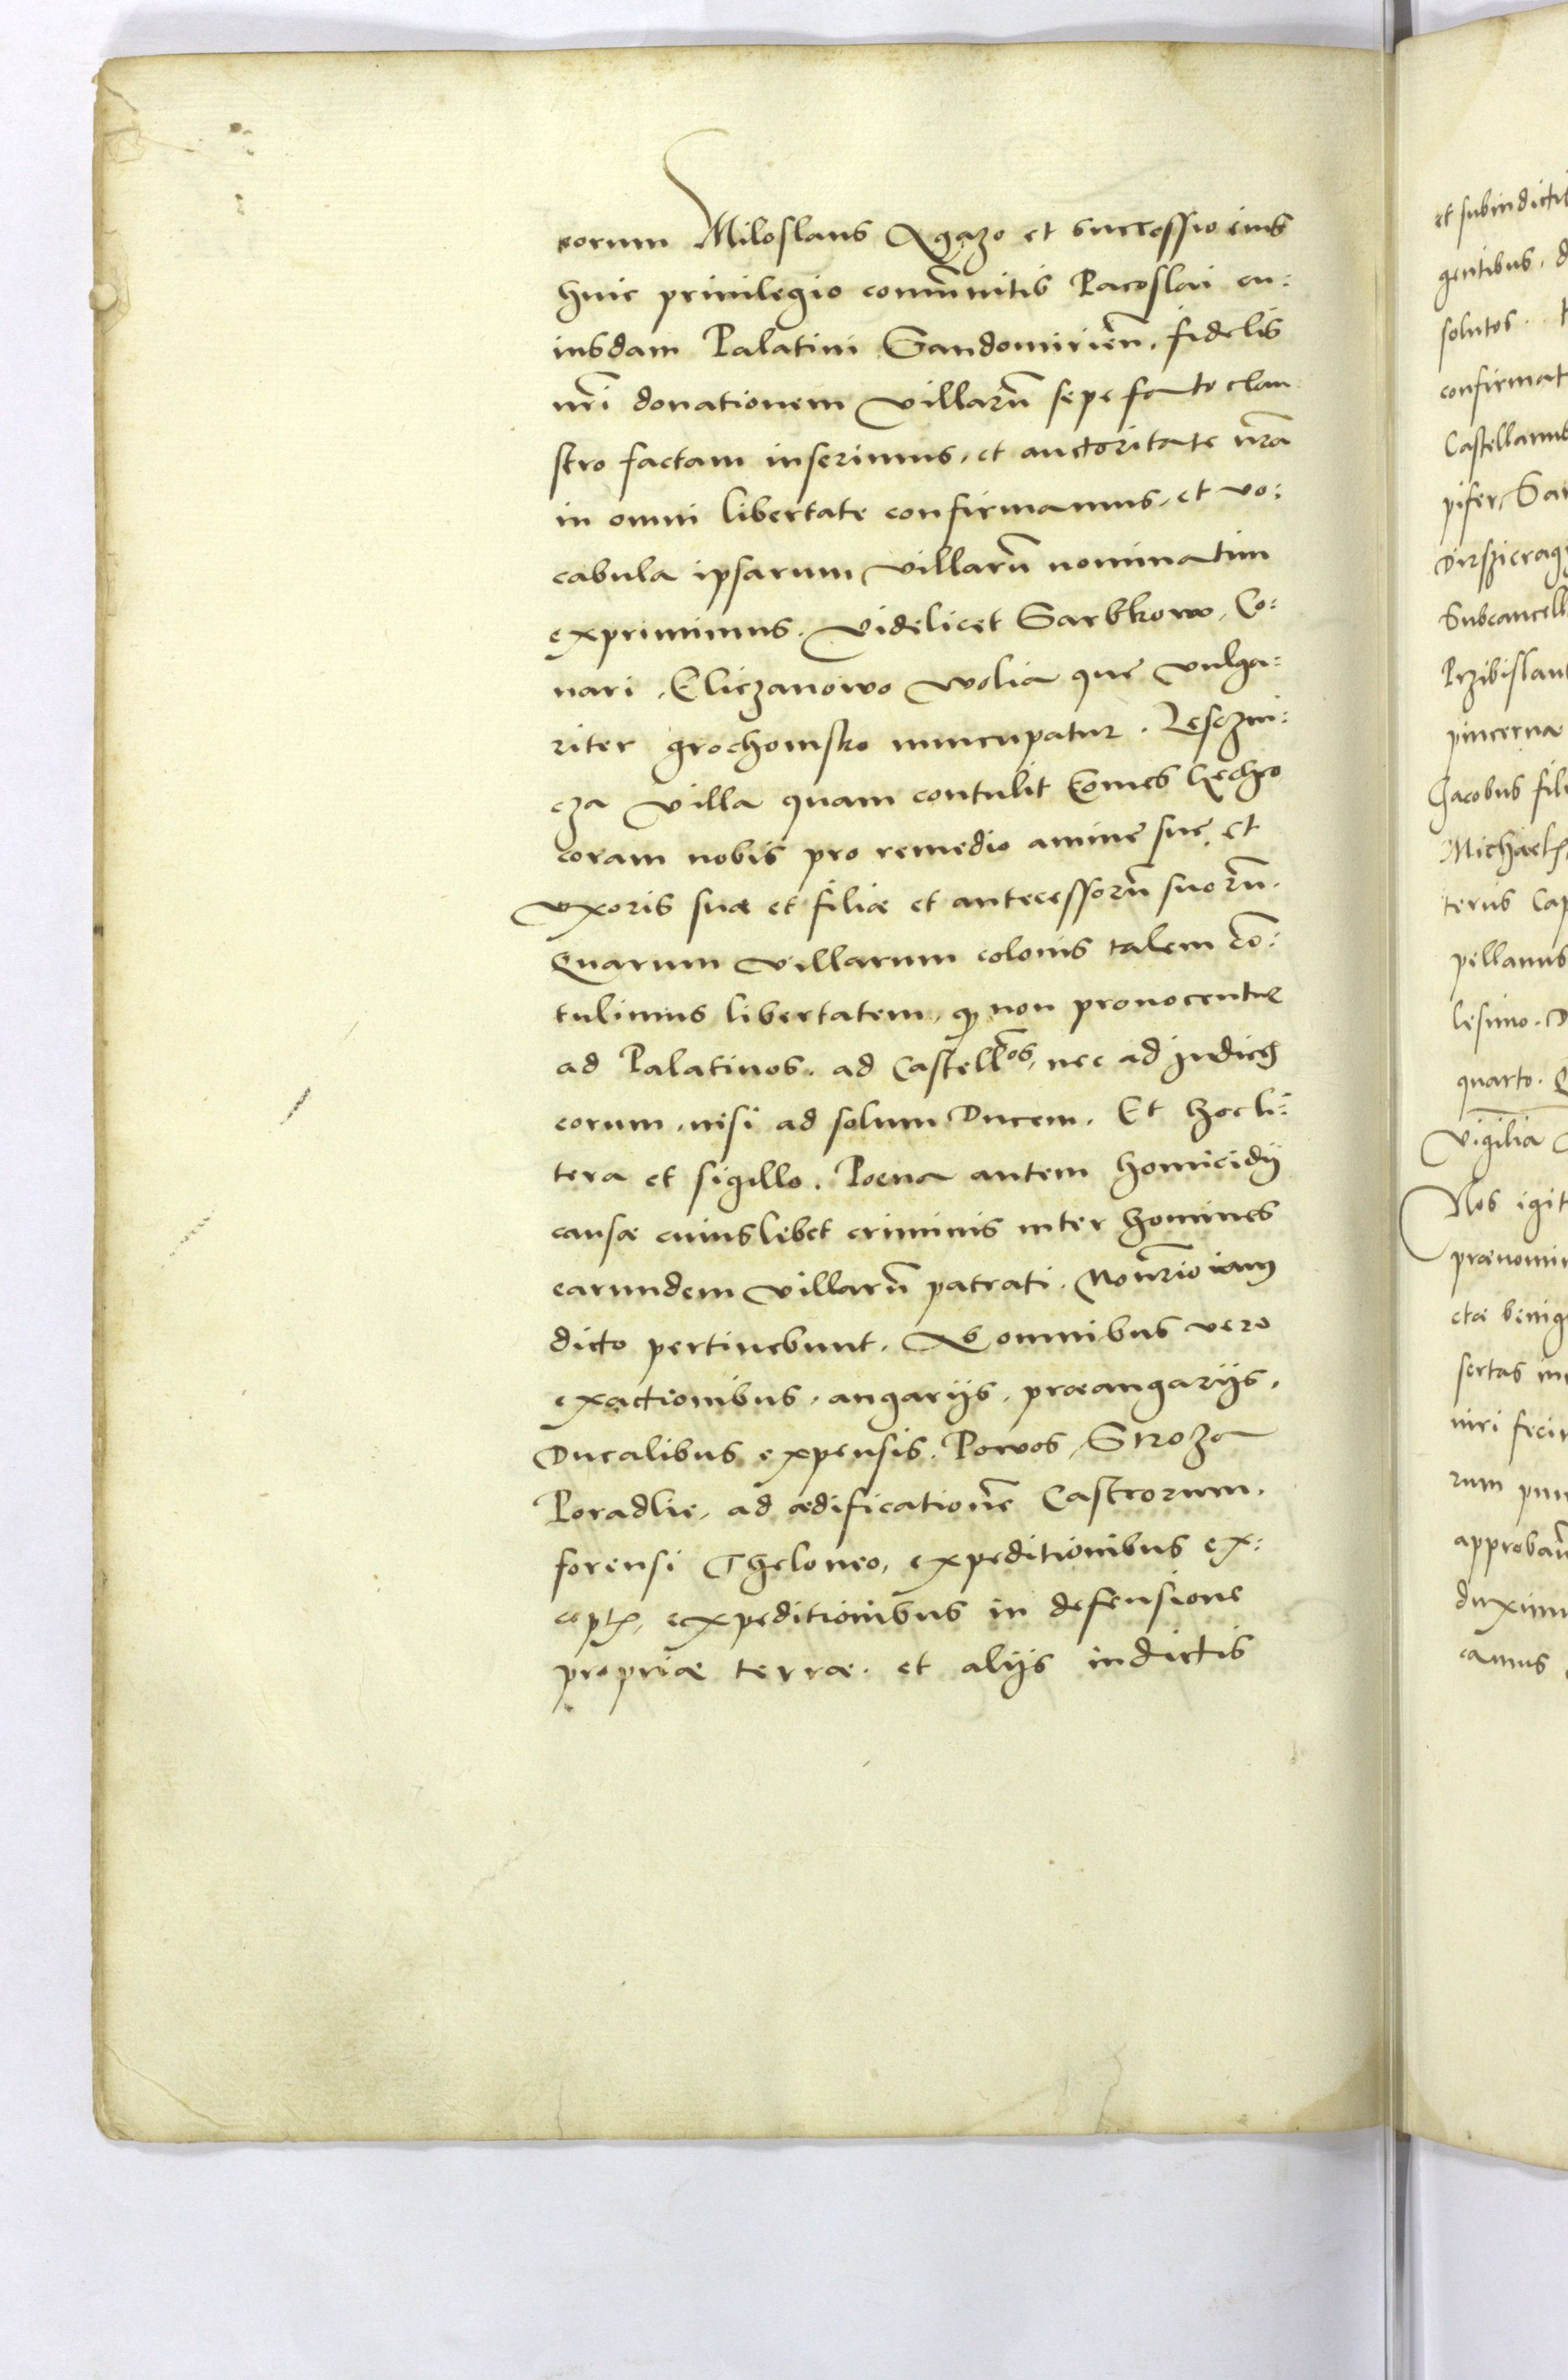 eorum Miloslaus Agazo et successio eius
huic priuilegio cominuitis Pacoslai cu:
iusdam Palatini Sandomirien̄. fidelis
nr̄i donationem villarū sepe fato clau
stro factam inserimus, et auctoritate nr̄a
in omni libertate confirmamus, et uo:
cabula ipsarum villarū nominatim
exprimimus. Videlicet Sarbkow, Co:
nari, Eliczanowo wolia que vulga:
riter grochowsko nuncupatur. Lesczni:
cza villa quam contulit Comes Lechco
coram nobis pro remedio anime sue, et
vxoris suæ et filiæ et antecessorū suorū.
Quarum villarum colonis talem cō:
tulimus libertatem, qȝ non prouocentur
ad Palatinos, ad Castellos, nec ad judices
eorum, nisi ad solum Ducem. Et hoc li:
tera et sigillo. Poena autem homicidij
causæ cuiuslibet criminis inter homines
earundem villarū patrati. Mon̄rio iam
dicto pertinebunt. Ab omnibus vero
exactionibus, angarijs, præangarijs,
Ducalibus expensis. Powos, Stroza
Poradlie, ad ædificationē Castrorum,
forensi Theloneo, expeditionibus ex:
ceptꝭ, expeditionibus in defensione
propriæ terræ. et alijs indictis
et subindictis
gentibus, d
solutos.
confirmat
Castellanus
pifer, San
Dirszicraq
Subcancell
Przibislaus
pincernæ
Jacobus fili
Michael
terius Cap
pellanus
lesimo. D
quarto. Q
Vigilia
Nos igit
prænomin
ctæ benig
sertas in
niri feci
rum pun
approban̄
duximu
camus